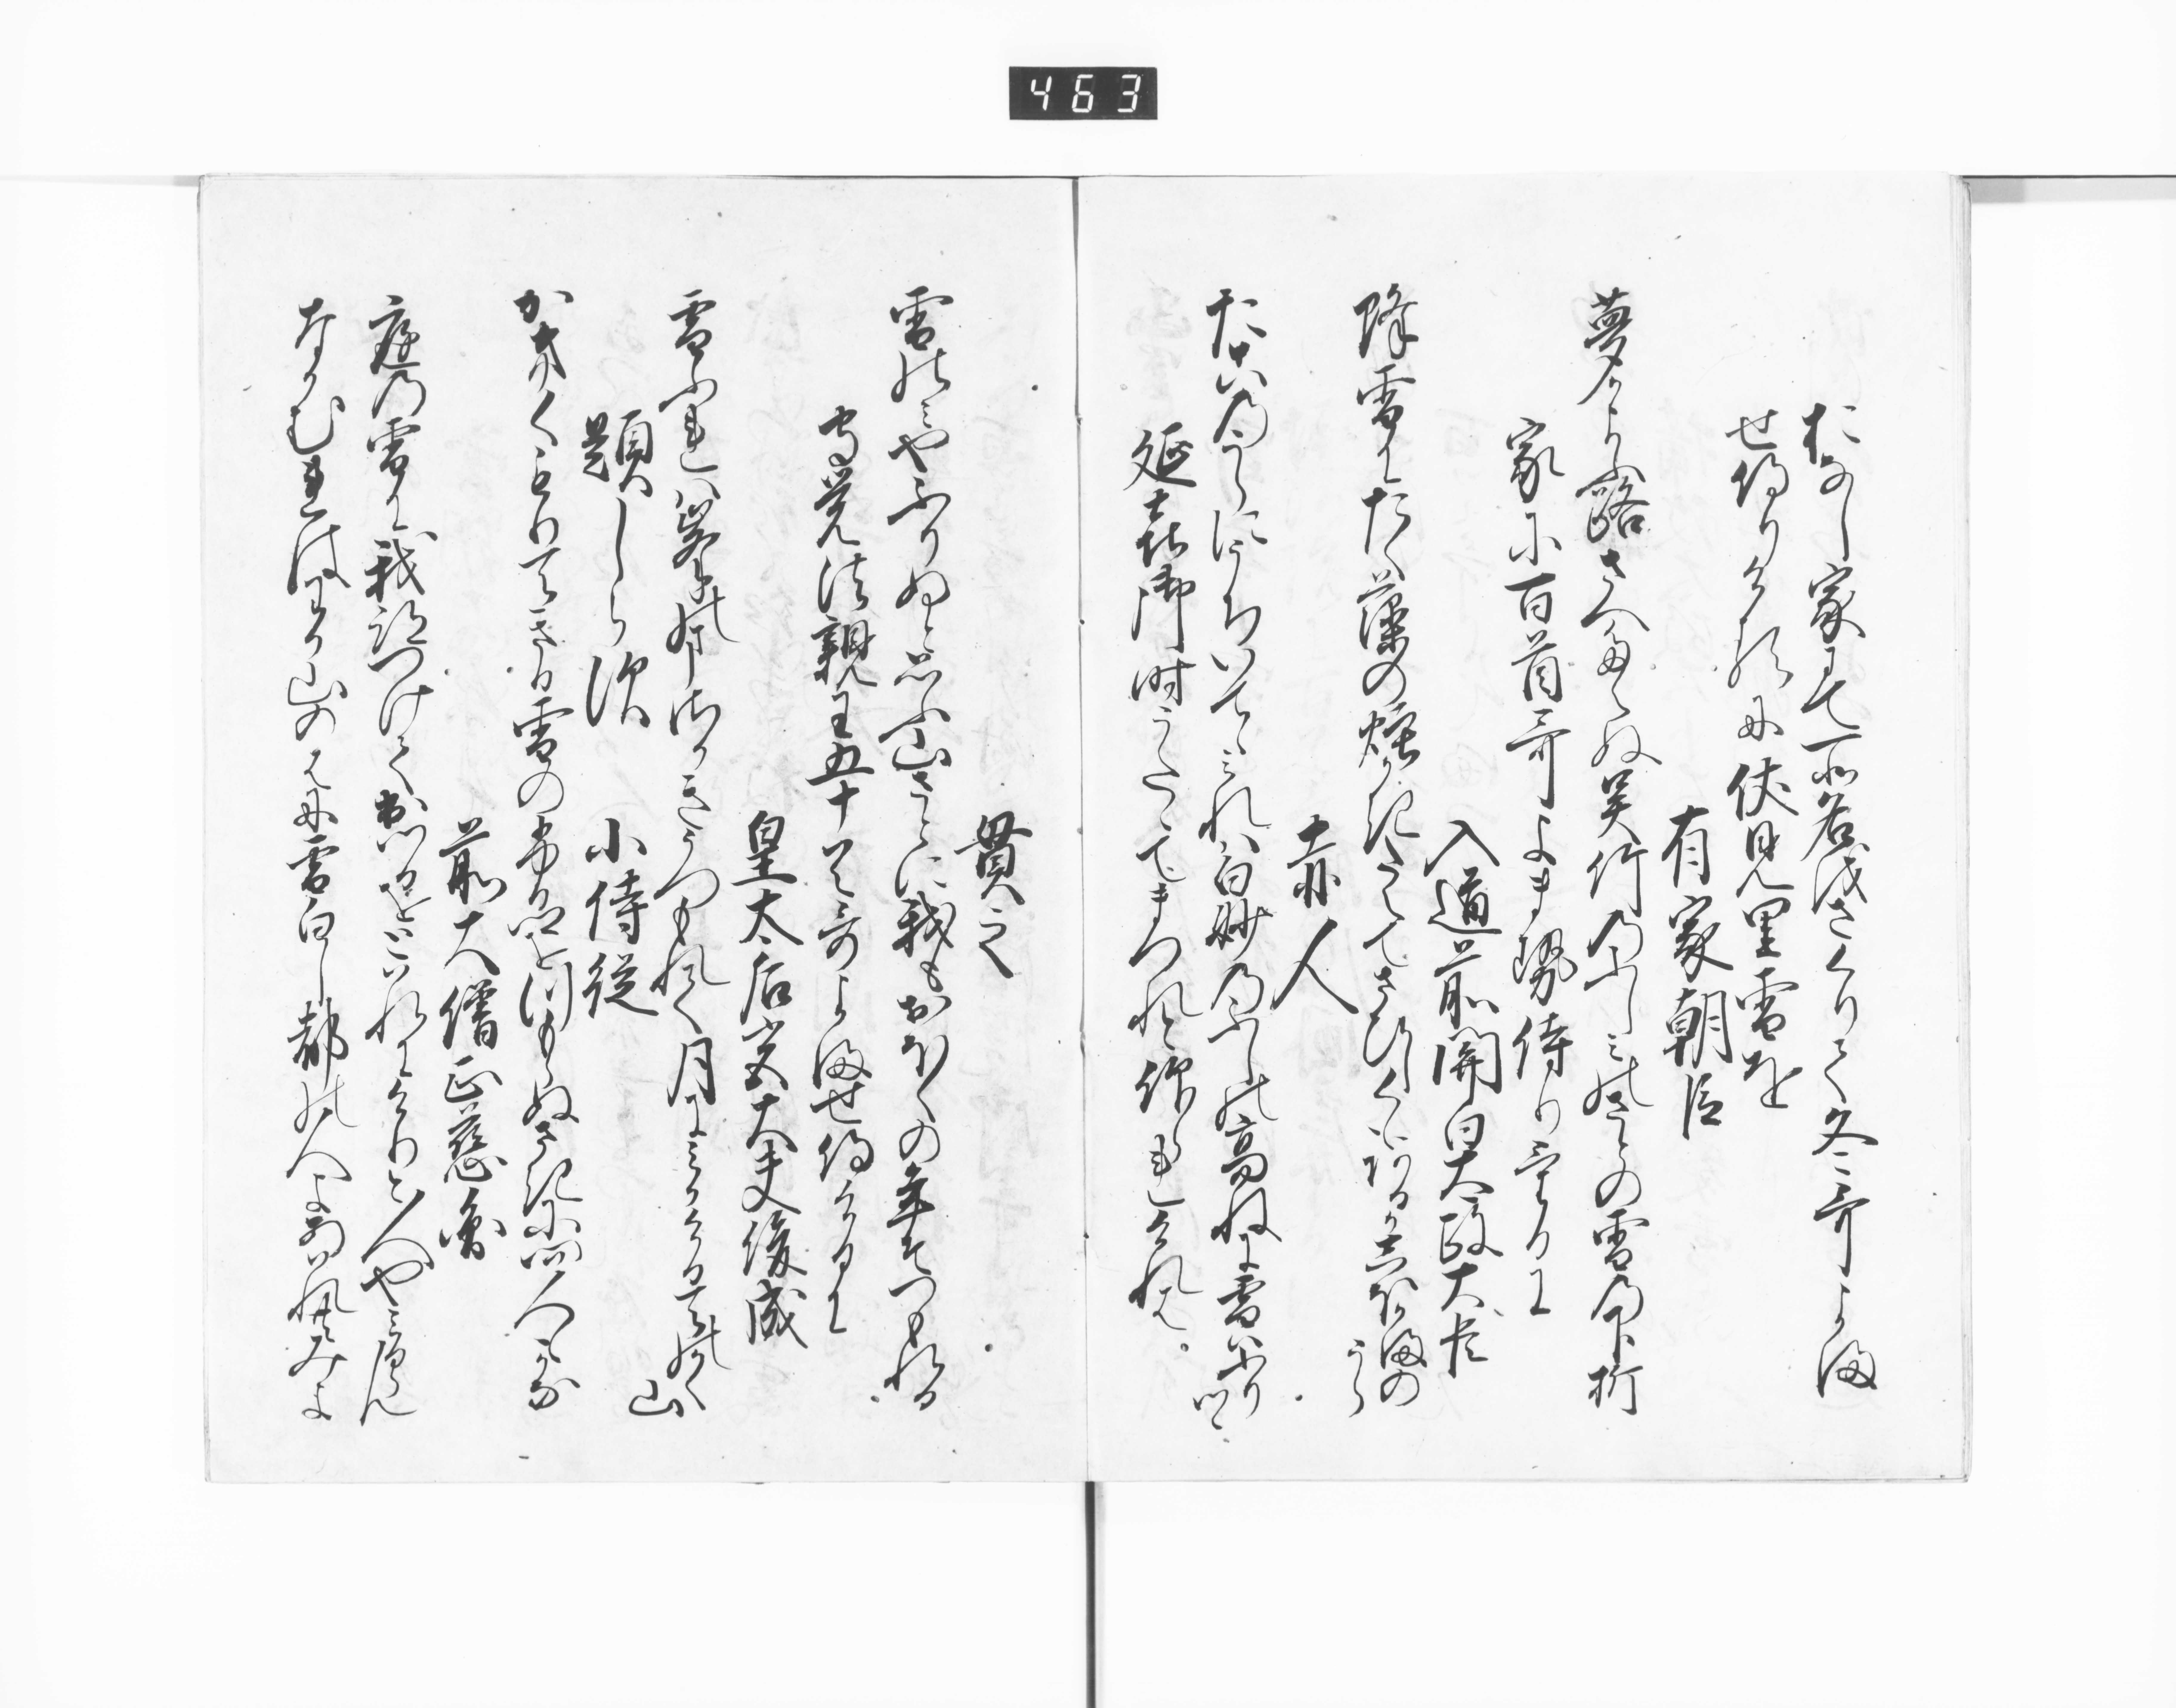 463
おなし家にて所名をさくりて冬哥よま
せ侍りけるに伏見里雪を
有家朝臣
夢かよふ路さへ絶ぬ呉竹のふしみのさとの雪の下折
家に百首哥よませ侍りけるに
入道前関白太政大臣
降雪にたく藻の煙かきたえてさひしくもあるかしほかまのうら
赤人
たこの浦にうちいてゝみれは白妙のふしの高ねに雪はふりつゝ
延喜御時うたゝてまつれと仰られけれは
貫之
雪のみやふりぬと思ふ山さとに我もおほくの年そつもれる
守覚法親王五十首哥よませ侍けるに
皇太后宮大夫俊成
雪ふれは峯のまさかきうつもれて月にみかける天のかく山
題しらす
小侍従
かきくもりあまきる雪の
前大僧正慈圓
庭の雪に我跡つけて出つるをとはれにけりと人やみるらん
なかむれはわか山のはに雪白し都の人よあはれとみよ